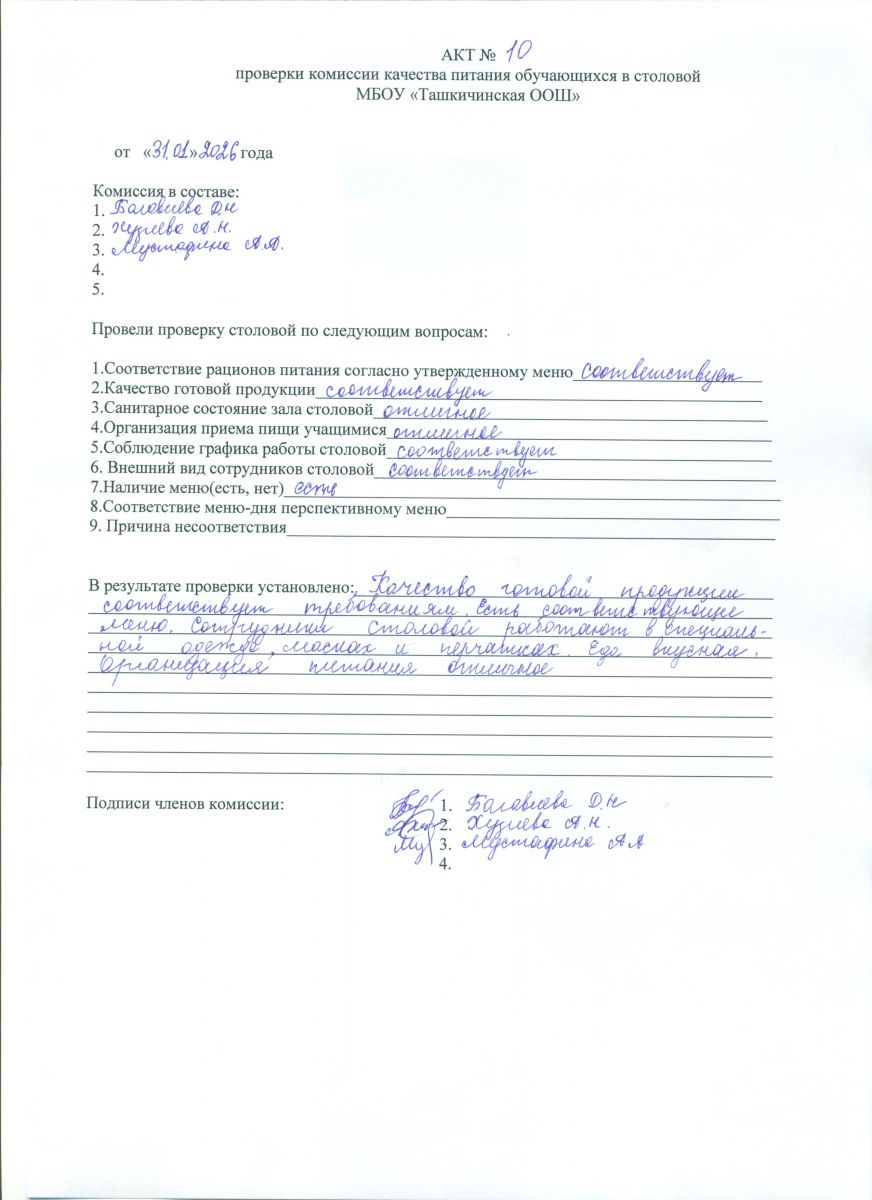 АКТ № 10
проверки комиссии качества питания обучающихся в столовой
МБОУ «Ташкичинская ООШ»
от «31.01» 2026 года
Комиссия в составе:
1. Багавиева Д.Н
2. Хузиева А.Н.
3. Мустафина А.А.
4.
5.
Провели проверку столовой по следующим вопросам:
1.Соответствие рационов питания согласно утвержденному меню соответствует
2.Качество готовой продукции соответствует
3.Санитарное состояние зала столовой отличное
4.Организация приема пищи учащимися отличное
5.Соблюдение графика работы столовой соответствует
6. Внешний вид сотрудников столовой соответствует
7.Наличие меню(есть, нет) есть
8.Соответствие меню-дня перспективному меню
9. Причина несоответствия
В результате проверки установлено: Качество готовой продукции
соответствует требованиям. Есть соответствующие
меню. Сотрудники столовой работают в специаль-
ной одежде, масках и перчатках. Еда вкусная.
Организация питания отличное
Подписи членов комиссии:
1. Багавиева Д.Н
2. Хузиева А.Н.
3. Мустафина А А
4.